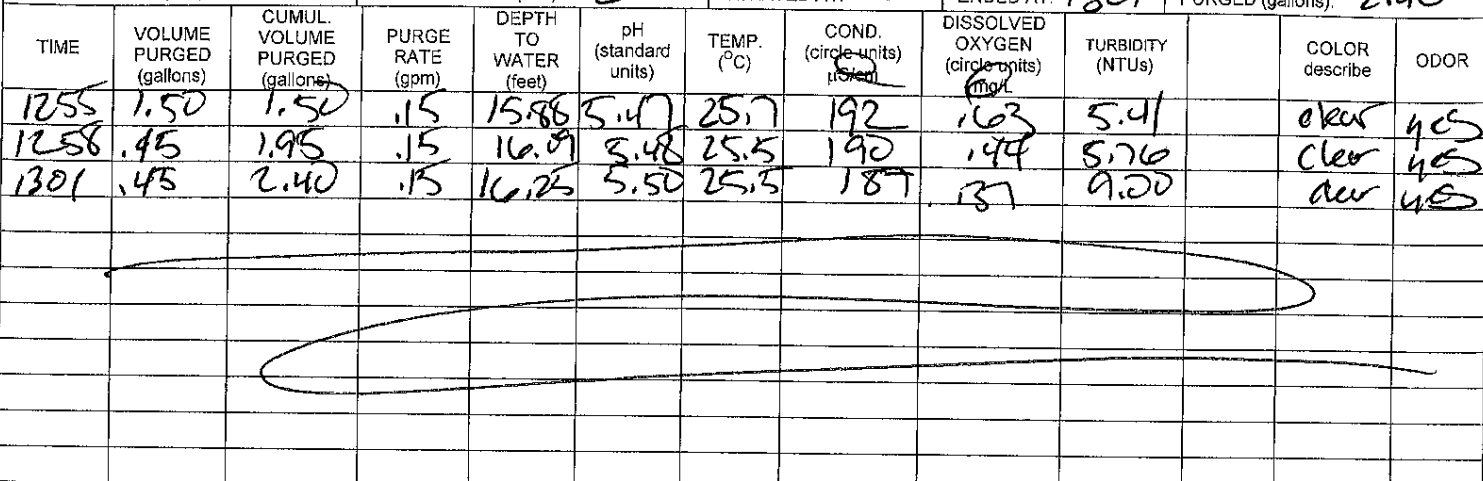 ENDED AT: 1301 PURGED (gallons): 2.40
TIME VOLUME PURGED (gallons) CUMUL. VOLUME PURGED (gallons) PURGE RATE (gpm) DEPTH TO WATER (feet) pH (standard units) TEMP. (°C) COND. (circle units) µS/cm DISSOLVED OXYGEN (circle units) mg/L TURBIDITY (NTUs) COLOR describe ODOR
1255 1.50 1.50 .15 15.88 5.47 25.7 192 .63 5.41 clear yes
1258 .45 1.95 .15 16.09 5.48 25.5 190 .44 5.76 clear yes
1301 .45 2.40 .15 16.25 5.50 25.5 187 .37 9.00 clear yes